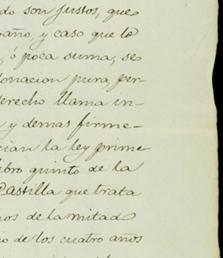 do son justos, que
año, y caso que lo
, ó poca suma, se
donacion pura, per-
derecho llama in-
y demas firme-
cian la ley prime
libro quinto de la
Castilla que trata
nos de la mitad
io de los cuatro años